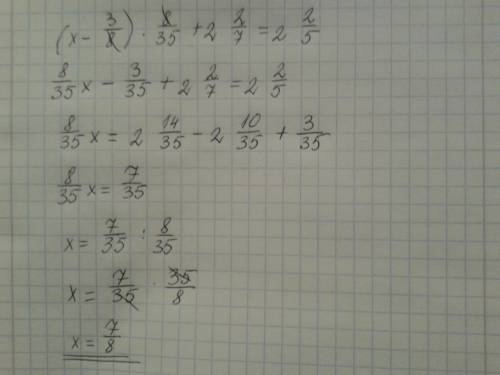 (x - 3/8) · 8/35 + 2 2/7 = 2 2/5
8/35 x - 3/35 + 2 2/7 = 2 2/5
8/35 x = 2 14/35 - 2 10/35 + 3/35
8/35 x = 7/35
x = 7/35 : 8/35
x = 7/35 · 35/8
x = 7/8